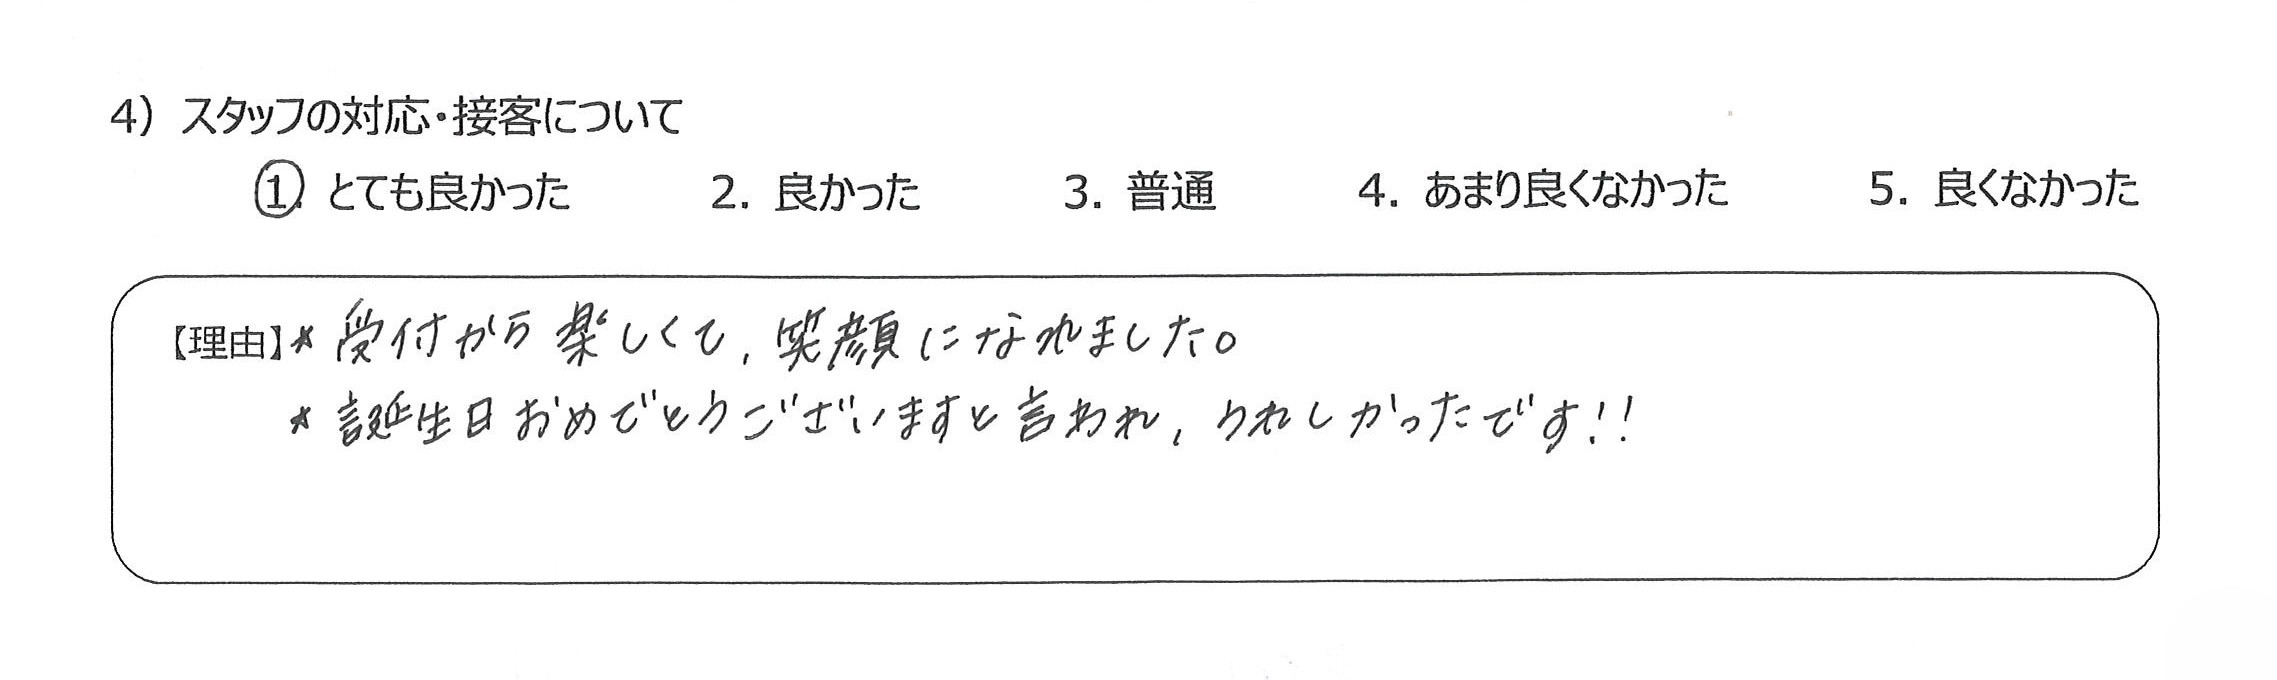 4) スタッフの対応・接客について
1. とても良かった 2. 良かった 3. 普通 4. あまり良くなかった 5. 良くなかった
【理由】* 受付から楽しくて、笑顔になれました。
* 誕生日おめでとうございますと言われ、うれしかったです!!